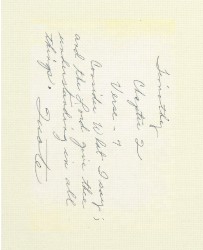 Timothy
Chapter 2
Verse - 7
Consider What I say;
and the Lord give thee
understanding in all
things. Quote